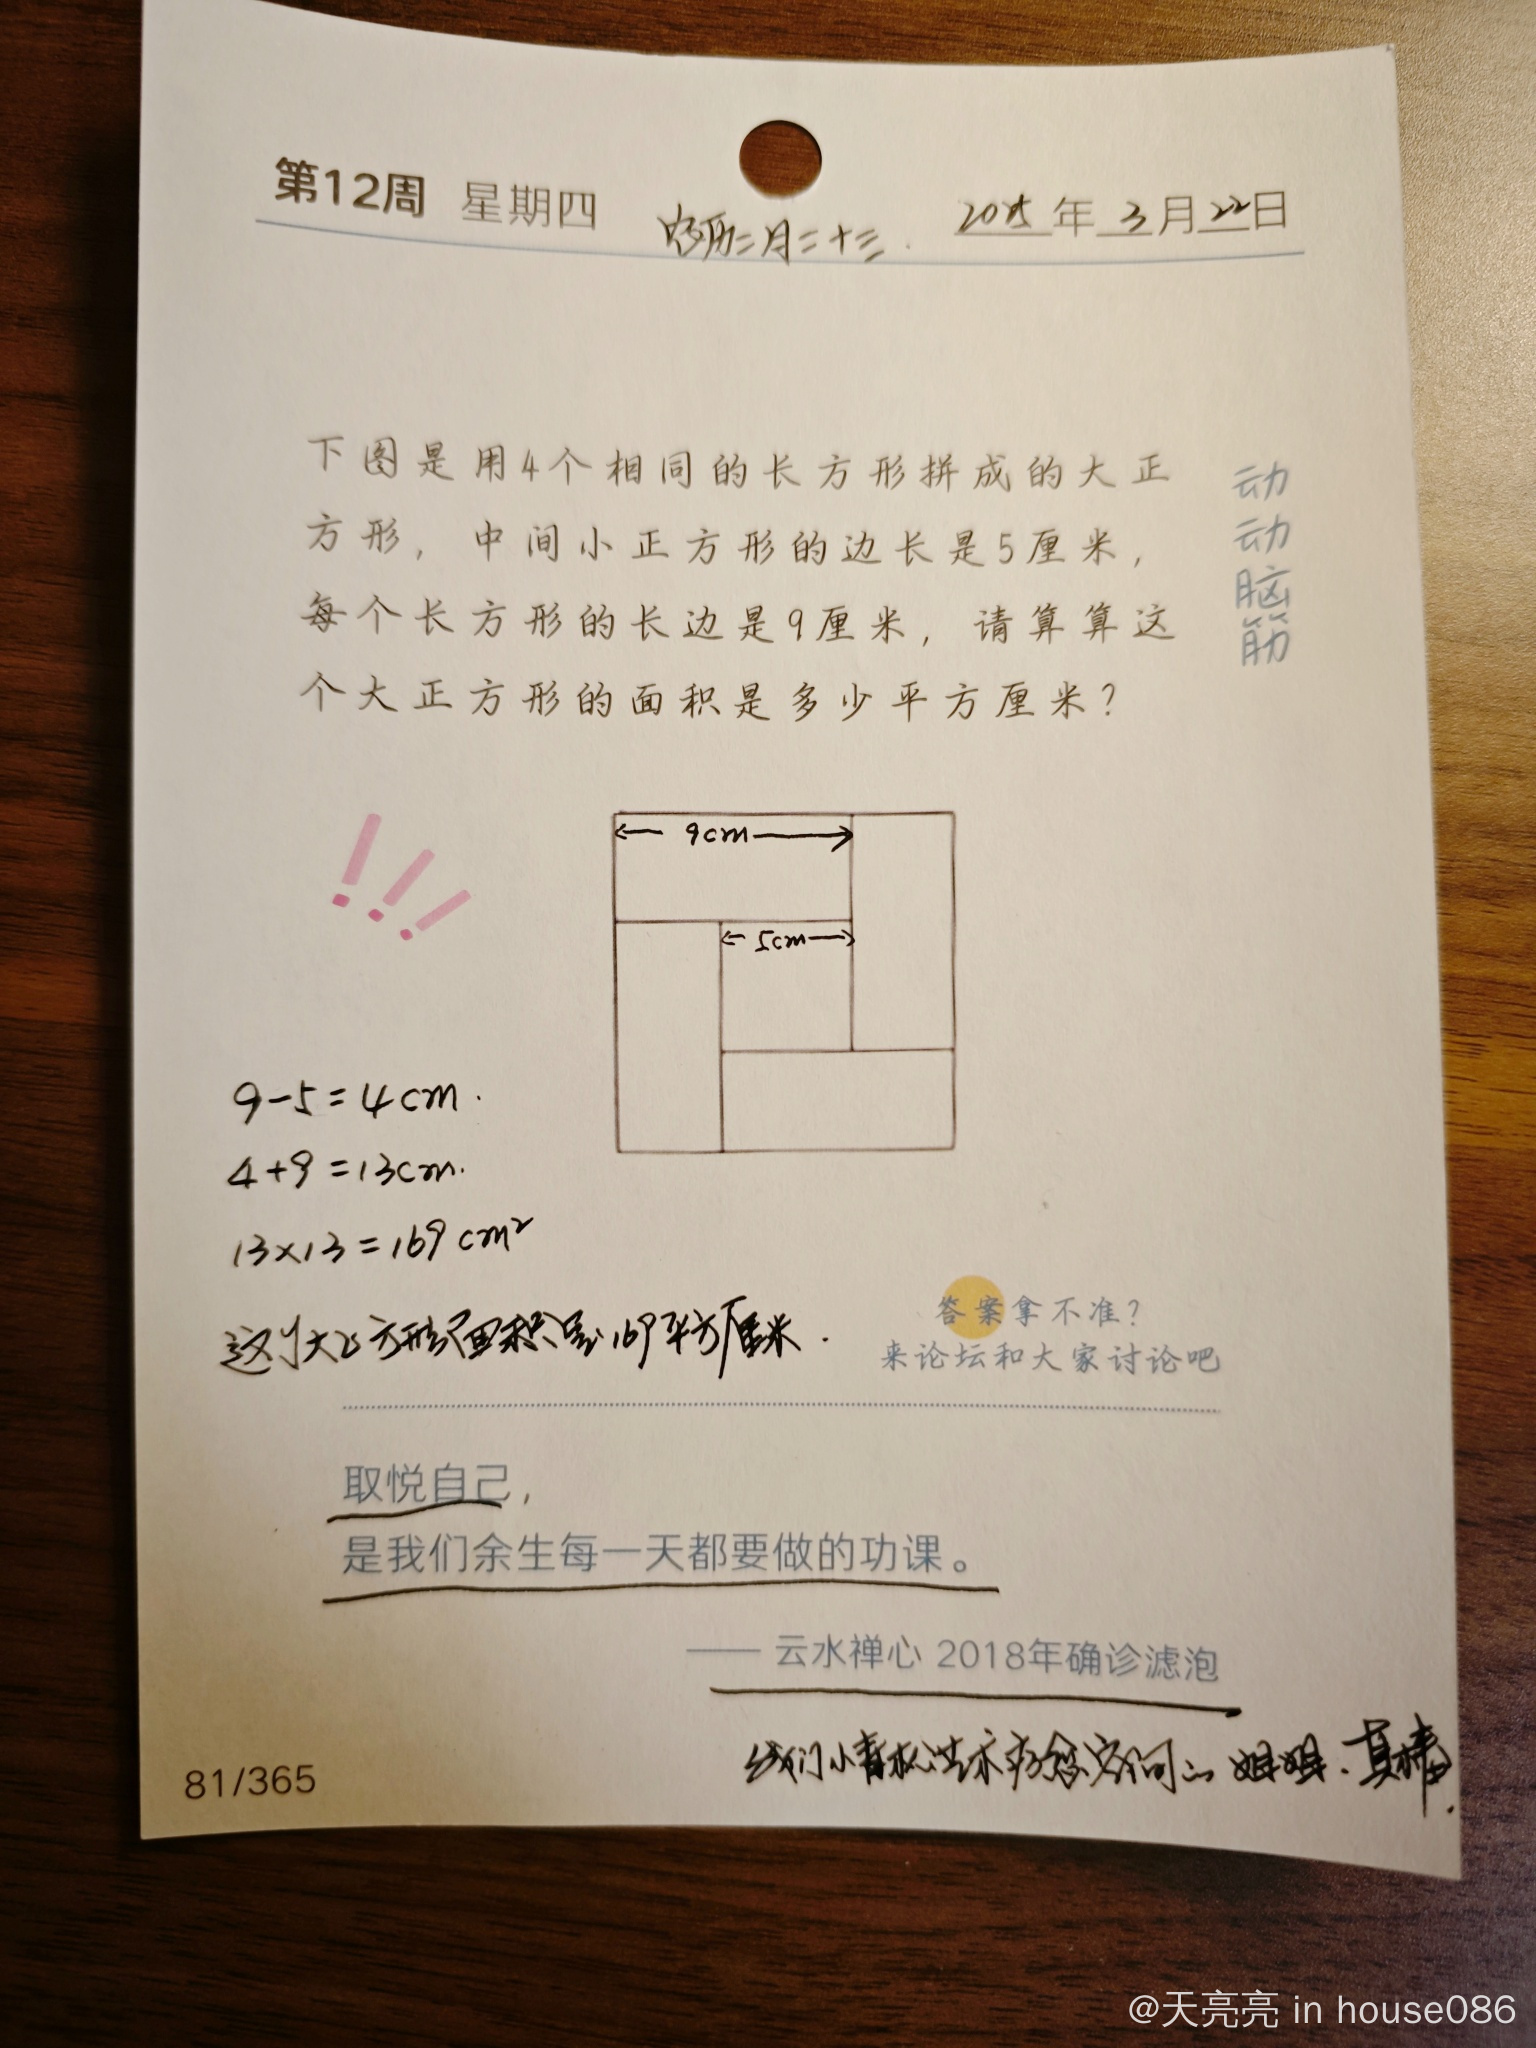 第12周 星期四
农历二月二十三
2025年3月22日
下图是用4个相同的长方形拼成的大正
方形，中间小正方形的边长是5厘米，
每个长方形的长边是9厘米，请算算这
个大正方形的面积是多少平方厘米？
动
动
脑
筋
9cm
5cm
9-5=4cm.
4+9=13cm.
13×13=169cm²
这个大正方形面积是169平方厘米.
答案拿不准？
来论坛和大家讨论吧
取悦自己，
是我们余生每一天都要做的功课。
—— 云水禅心 2018年确诊滤泡
我们小青松 姐姐.真棒.
81/365
@天亮亮 in house086